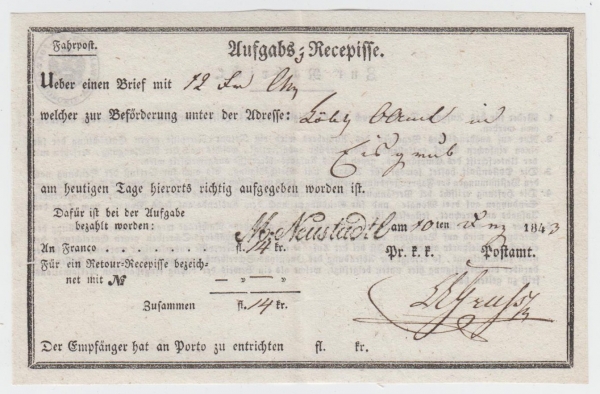 Fahrpost.
Aufgabs-Recepisse.
Ueber einen Brief mit 12 Fr
welcher zur Beförderung unter der Adresse: Löbl. Oberamt in
Eisgrub
am heutigen Tage hierorts richtig aufgegeben worden ist.
Dafür ist bei der Aufgabe
bezahlt worden:
Mr. Neustadtl am 10ten 1843
An Franco . . . . . . . fl. 14 kr. Pr. k. k. Postamt.
Für ein Retour-Recepisse bezeich-
net mit № — „ — „
Zusammen fl. 14 kr.
Der Empfänger hat an Porto zu entrichten fl. kr.